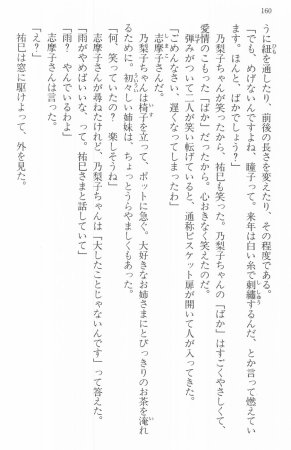 160
うに紐を通したり、前後の長さを変えたり、その程度である。
「でも、めげないんですよね、瞳子って。来年は白い糸で刺繡するんだ、とか言って燃えてい
ます。ほんと、ばかでしょう？」
乃梨子ちゃんが笑ったから、祐巳も笑った。乃梨子ちゃんの「ばか」はすごくやさしくて、
愛情のこもった「ばか」だったから。心おきなく笑えたのだ。
弾みがついて二人が笑い転げていると、通称ビスケット扉が開いて人が入ってきた。
「ごめんなさい、遅くなってしまったわ」
志摩子さんだ。
乃梨子ちゃんは椅子を立って、ポットに急ぐ。大好きなお姉さまにとびっきりのお茶を淹れ
るために。初々しい姉妹は、ちょっとうらやましくもあった。
「何、笑っていたの？　楽しそうね」
志摩子さんが尋ねたけれど、乃梨子ちゃんは「大したことじゃないんです」って答えた。
「雨がやめばいいな、って。祐巳さまと話していて」
「雨？　やんでいるわよ」
志摩子さんは言った。
「え？」
祐巳は窓に駆けよって、外を見た。